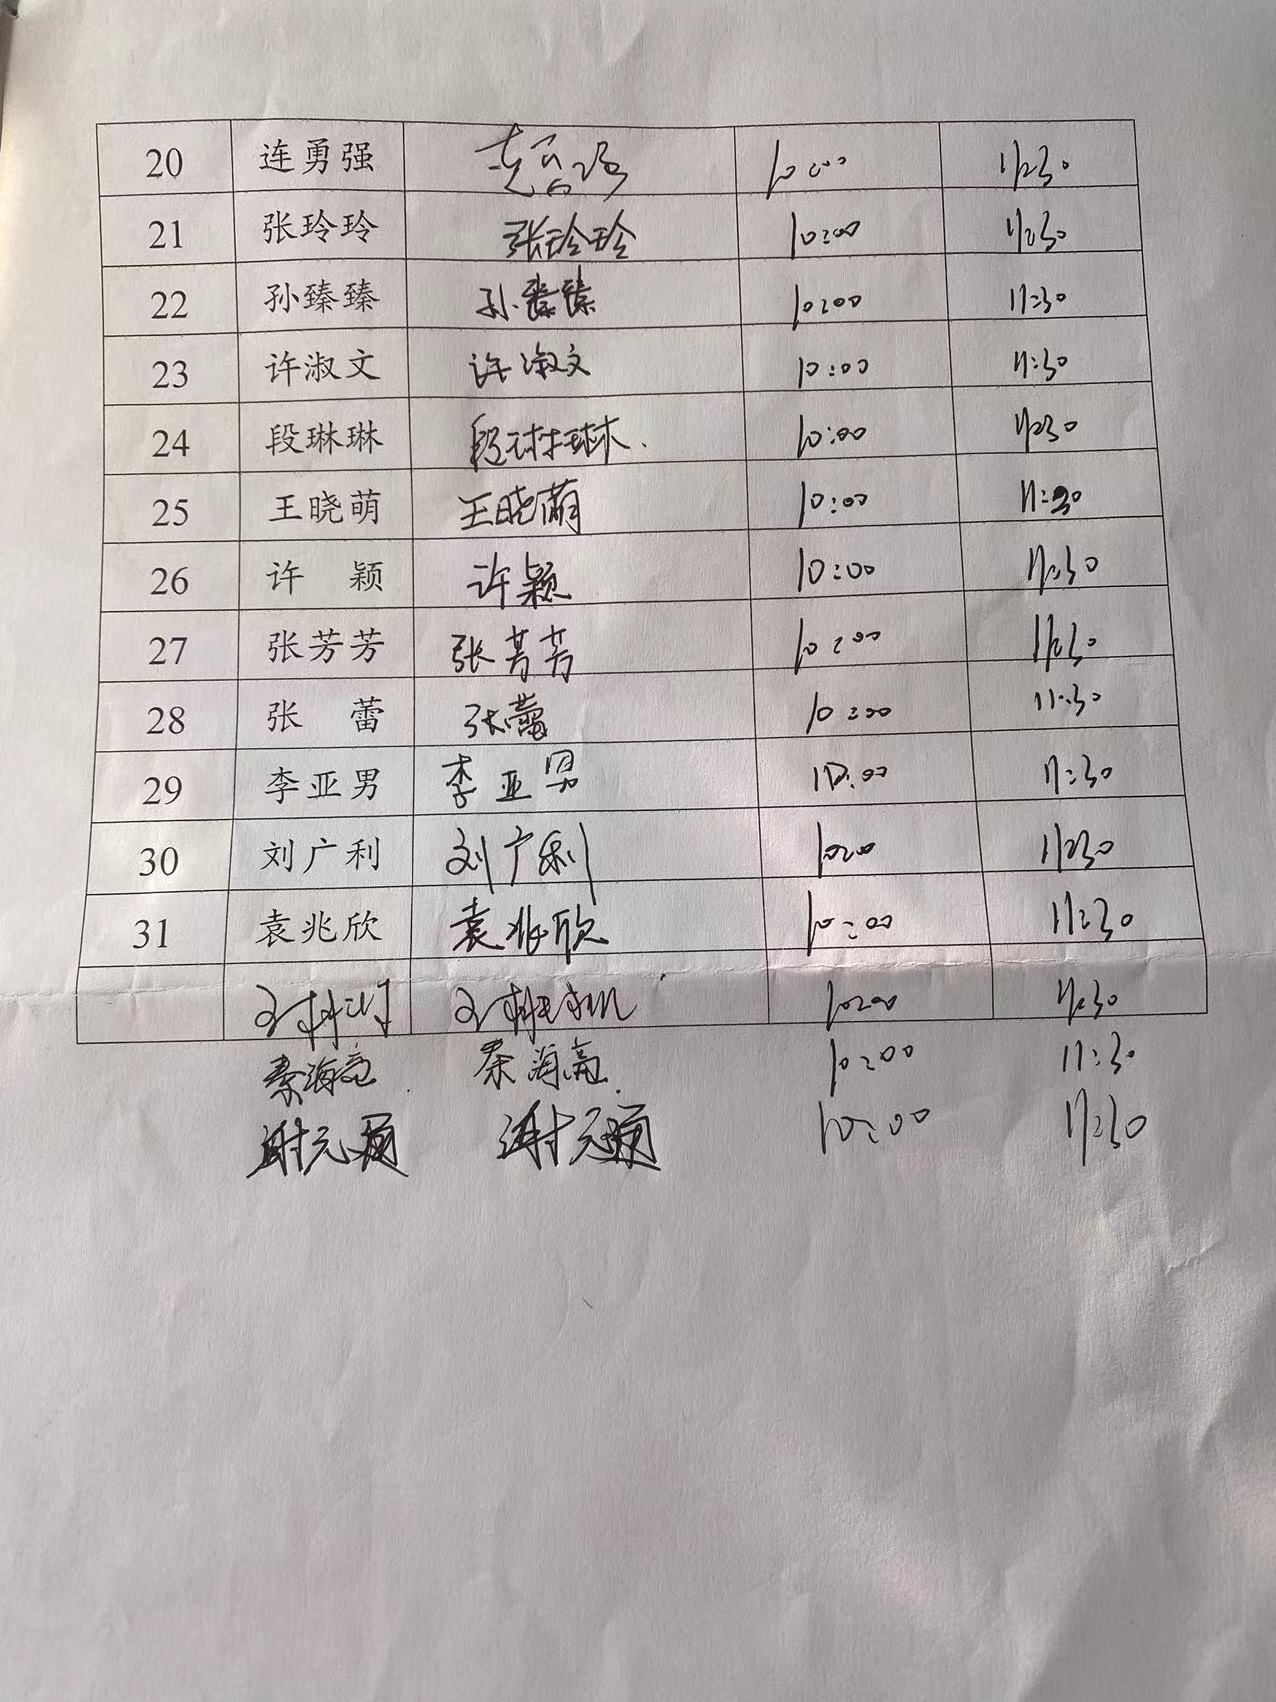 20 连勇强 10:00 11:30
21 张玲玲 张玲玲 10:00 11:30
22 孙臻臻 孙臻臻 10:00 11:30
23 许淑文 许淑文 10:00 11:30
24 段琳琳 段琳琳. 10:00 11:30
25 王晓萌 王晓萌 10:00 11:30
26 许 颖 许颖 10:00 11:30
27 张芳芳 张芳芳 10:00 11:30
28 张 蕾 张蕾 10:00 11:30
29 李亚男 李亚男 10:00 11:30
30 刘广利 刘广利 10:00 11:30
31 袁兆欣 袁兆欣 10:00 11:30
10:00 11:30
秦海亮 秦海亮 10:00 11:30
谢元 谢元 10:00 11:30